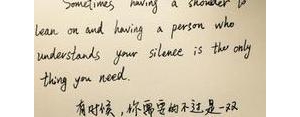 Sometimes having a shoulder to
lean on and having a person who
understands your silence is the only
thing you need.
有时候，你需要的不过是一双